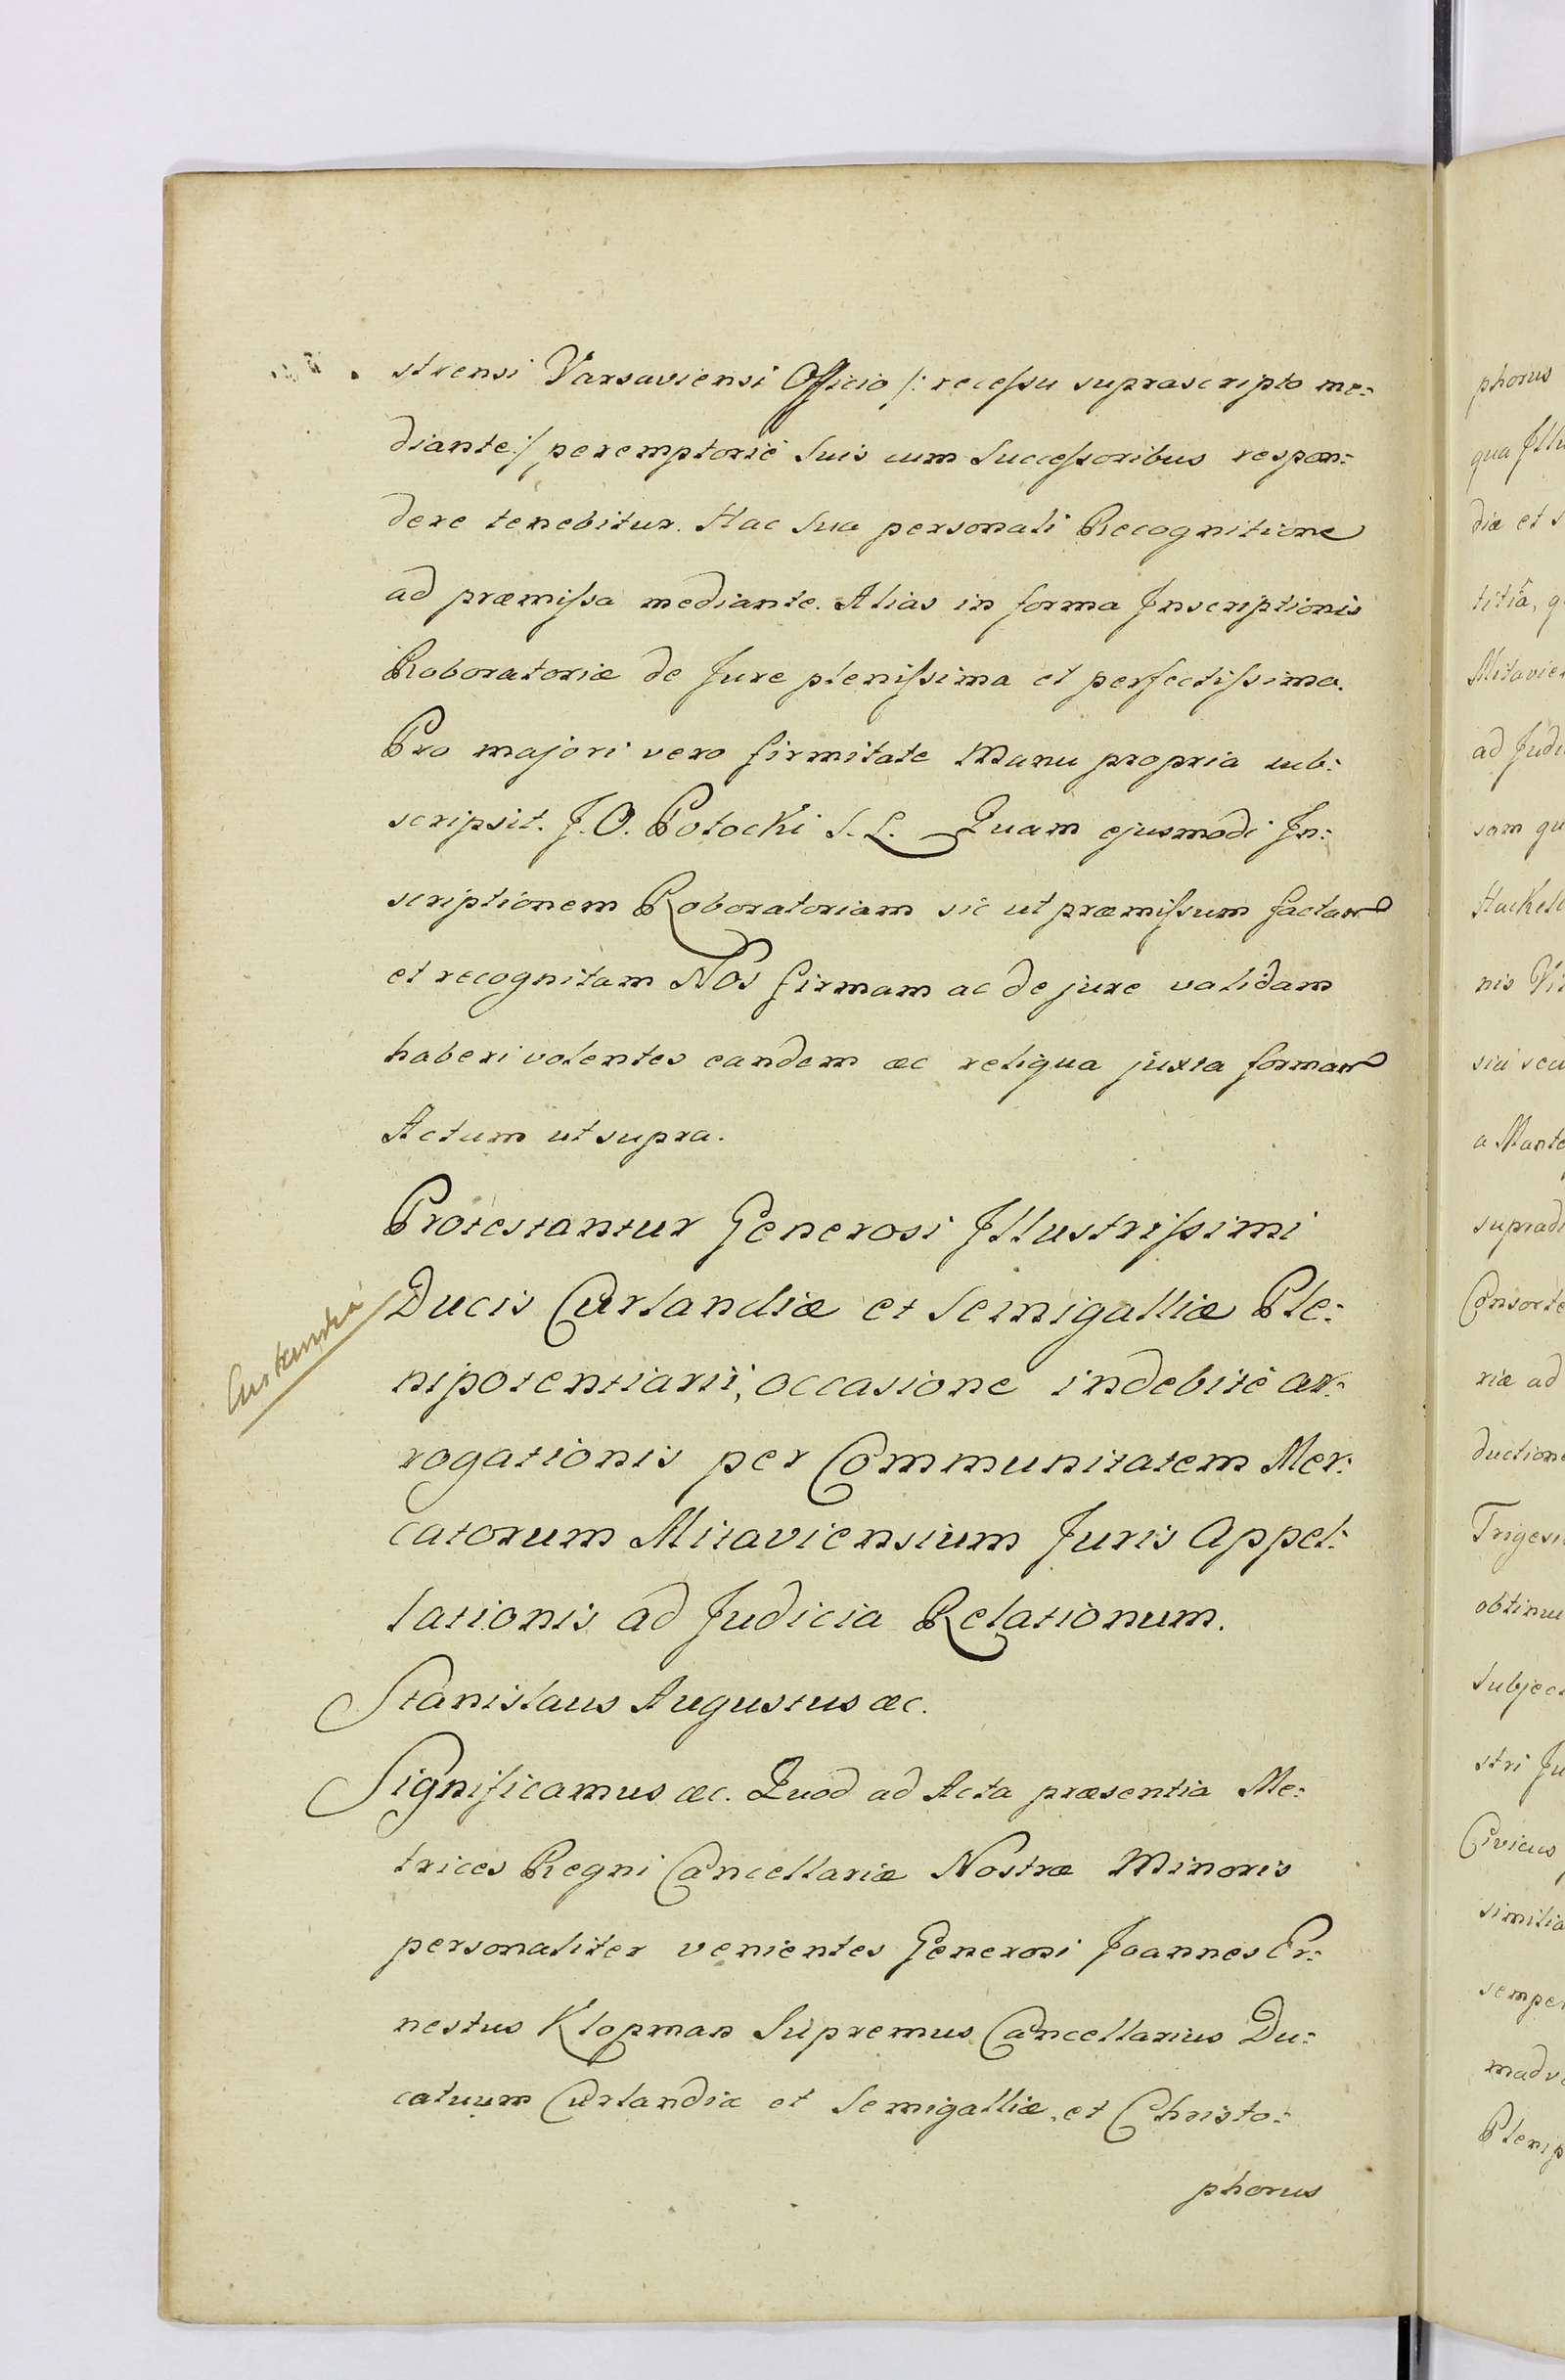 strensi Varsaviensi Officio /: recessu suprascripto me=
diante :/ peremptorie Suis cum Successoribus respon=
dere tenebitur. Hac Sua personali Recognitione
ad præmissa mediante. Alias in forma Inscriptionis
Roboratoriæ de Jure plenissima et perfectissima.
Pro majori vero firmitate Manu propria sub=
scripsit. J. O. Potocki S. L. Quam ejusmodi In=
scriptionem Roboratoriam sic ut præmissum factam
et recognitam Nos firmam ac de jure validam
haberi volentes eandem &c reliqua juxta formam
Actum ut supra.
Protestantur Generosi Illustrissimi
Ducis Curlandiæ et Semigalliæ Ple=
nipotentiarii, occasione indebitè ar=
rogationis per Communitatem Mer=
catorum Mitaviensium Juris Appel=
lationis ad Judicia Relationum.
Stanislaus Augustus &c.
Significamus &c. Quod ad Acta præsentia Me=
trices Regni Cancellariæ Nostræ Minoris
personaliter venientes Generosi Joannes Er=
nestus Klopman Supremus Cancellarius Du=
catuum Curlandiæ et Semigalliæ, et Christo=
phorus
phorus
qua Illu
diæ et S
titiâ, q
Mitavien
ad Judi
sam qu
Hackel
nis Vi
sici secu
a Mante
supradi
Consorte
riæ ad
duction
Trigesi
obtinu
Subject
stri Ju
Civicus
similia
semper
madv
Plenip